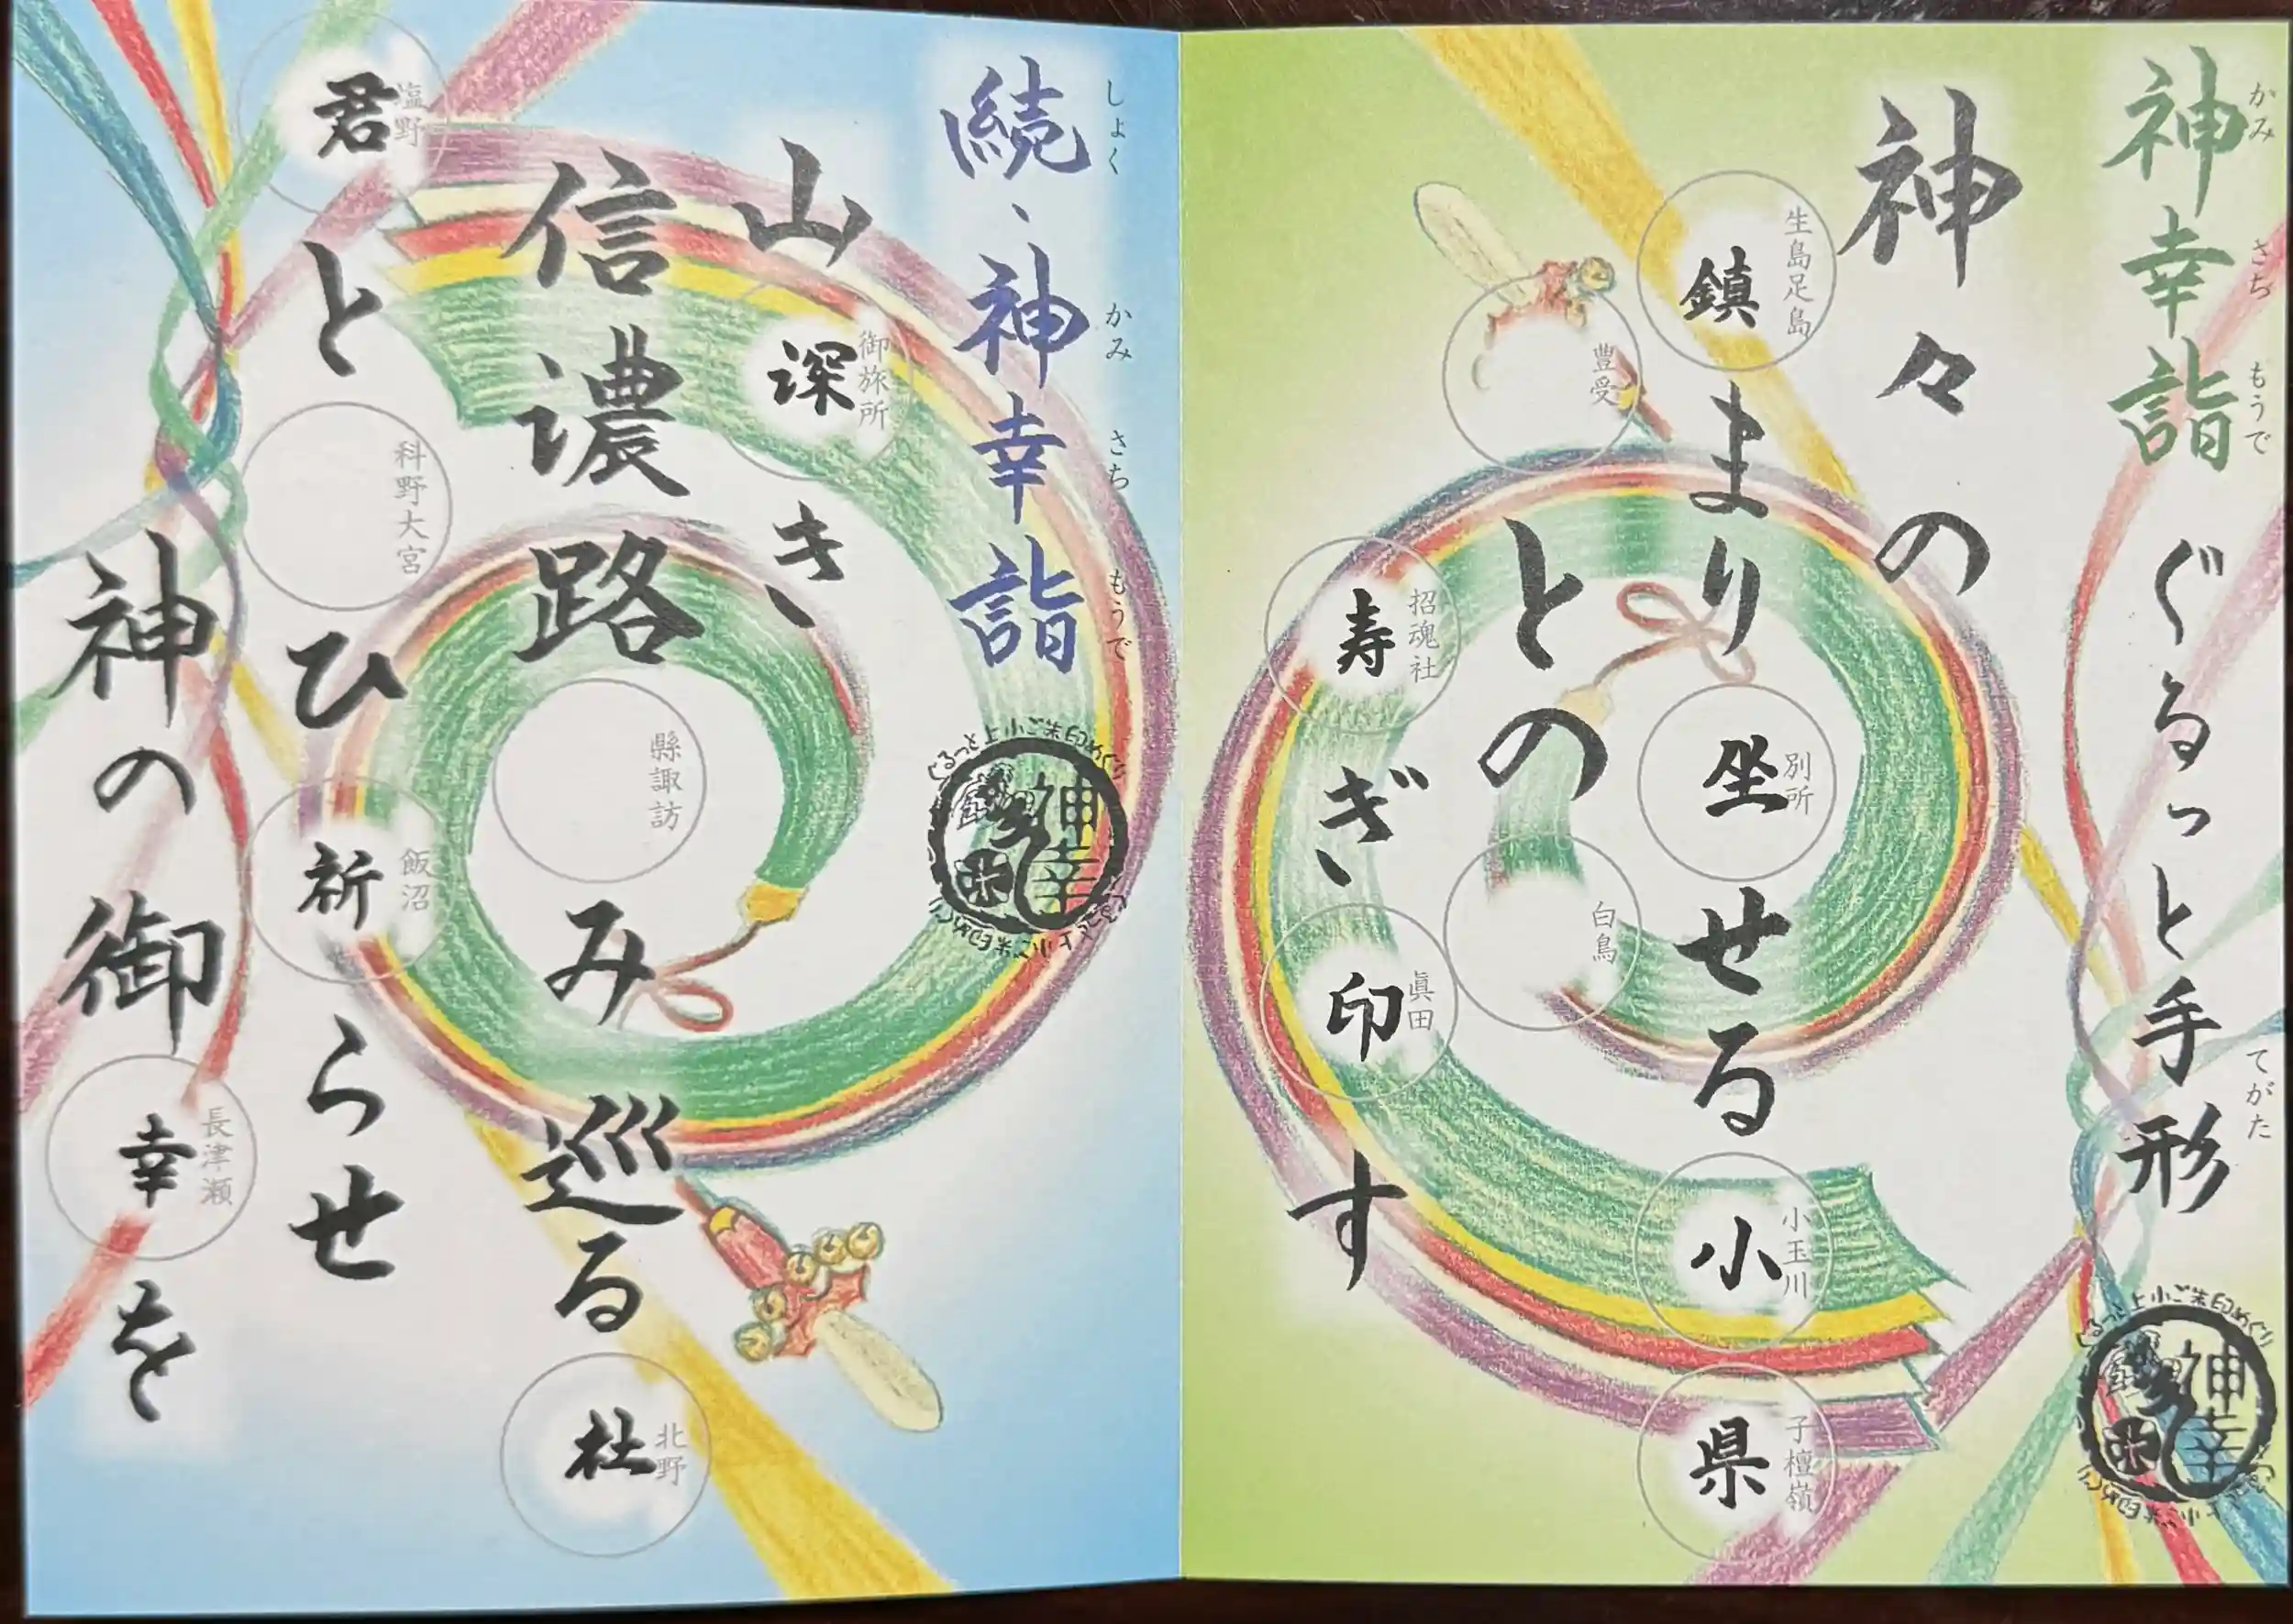 神幸詣 ぐるっと手形
かみ さち もうで てがた
神々の
鎮まり坐せる小県
生島足島
別所
小玉川
子檀嶺
との
豊受
白鳥
寿ぎ印す
招魂社
眞田
ぐるっと上小ご朱印めぐり
神幸
続、神幸詣
しょく かみ さち もうで
山深き
御旅所
信濃路み巡る杜
縣諏訪
北野
君とひ祈らせ
塩野
科野大宮
飯沼
神の御幸を
長津瀬
ぐるっと上小ご朱印めぐり
神幸